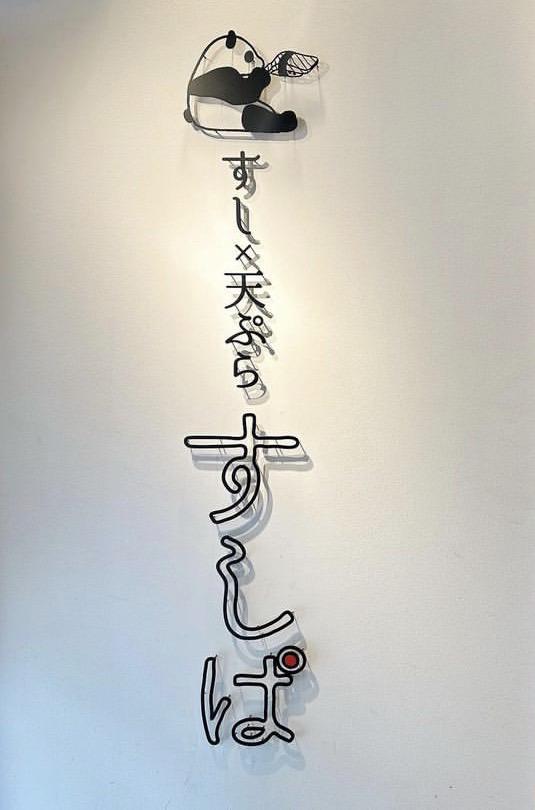 すし×天ぷら
すしぱ